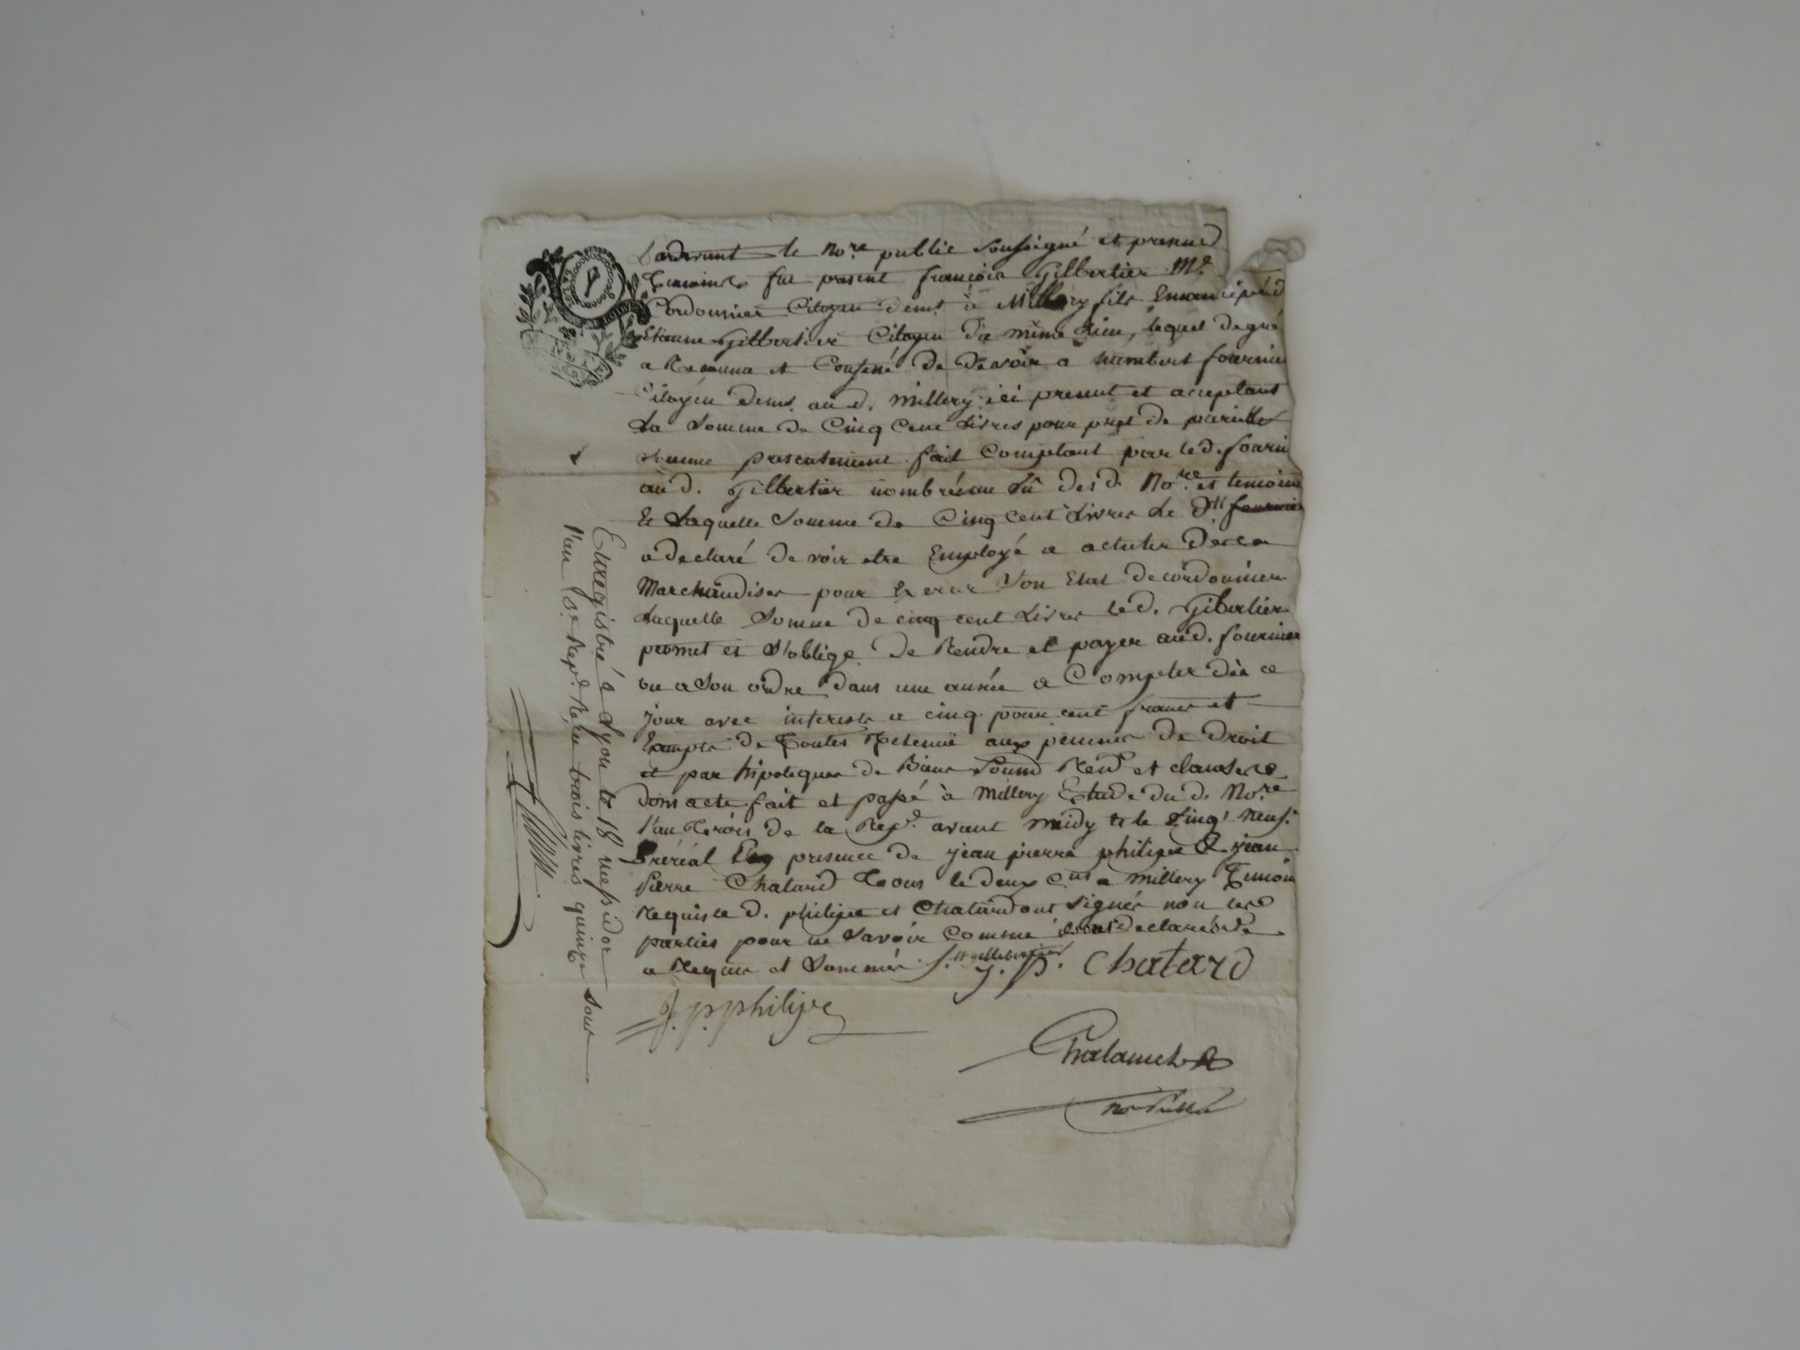 Pardevant le no.re public soussigné et presned
Temoins fut present françois Gilbertier M.e
Cordonnier Citoyen dem.t à Millery fils Emancipé d
Etienne Gilbertier Citoyen du même Lieu, lequel de gré
a Reconnu et Confessé de devoir a humbert fournier
Citoyen dem.t aud. Millery ici present et acceptant
La Somme de Cinq Cent Livres pour prest de pareille
somme presentement fait Comptant par led. fourni
aud. Gilbertier nombré au vû desd. No.re et temoins
Et Laquelle Somme de Cinq Cent Livres Le dit fournier
a declaré devoir etre Employé a acheter des
Marchandises pour Exercer Son Etat de cordonnier
Laquelle Somme de cinq cent Livres led. Gilbertier
promet et S'oblige de Rendre et payer aud. fournier
ou a Son ordre dans une année a Compter dès ce
jour avec interests a cinq pour cent francs et
Exempts de Toutes Retenue aux peinnes de droit
et par hipoteques de Biens Soumd Rend et clauses
dont acte fait et passé à Millery Etude du d. No.re
l'an Trois de la Rep.e avant midy & le Vingt neuf
Preréal En presence de jean pierre philipe & jean
Pierre Chatard Tous Le deux C.ns a Millery Temoin
Requis le d. philipe et Chatard ont Signés non les
parties pour ne Savoir Comme ont declaré de
a Requis et Sommés
J. P. Chatard
J. p. philipe
Chalamel
no.re public
Enregistré a Lyon le 18 messidor
l'an 3.e Rep.e Reçu trois livres quinze sous